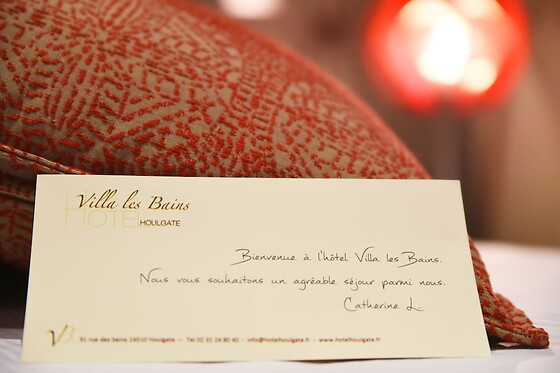 Villa les Bains
HOTEL HOULGATE
Bienvenue à l'hôtel Villa les Bains.
Nous vous souhaitons un agréable séjour parmi nous.
Catherine L.
VB 31 rue des bains 14510 Houlgate — Tel 02 31 24 80 40 - info@hotelhoulgate.fr - www.hotelhoulgate.fr